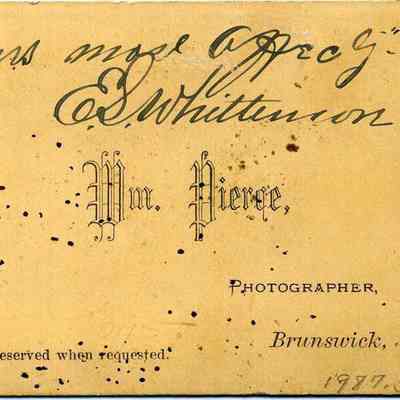 urs most affecy"
E. S. Whittemon
Wm. Pierce,
PHOTOGRAPHER,
Brunswick,
eserved when requested.
1987.